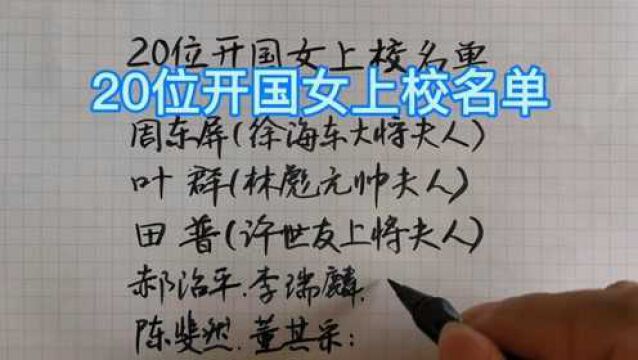 20位开国女上校名单
20位开国女上校名单
周东屏(徐海东大将夫人)
叶群(林彪元帅夫人)
田普(许世友上将夫人)
郝治平.李瑞麟.
陈斐然.董其采: